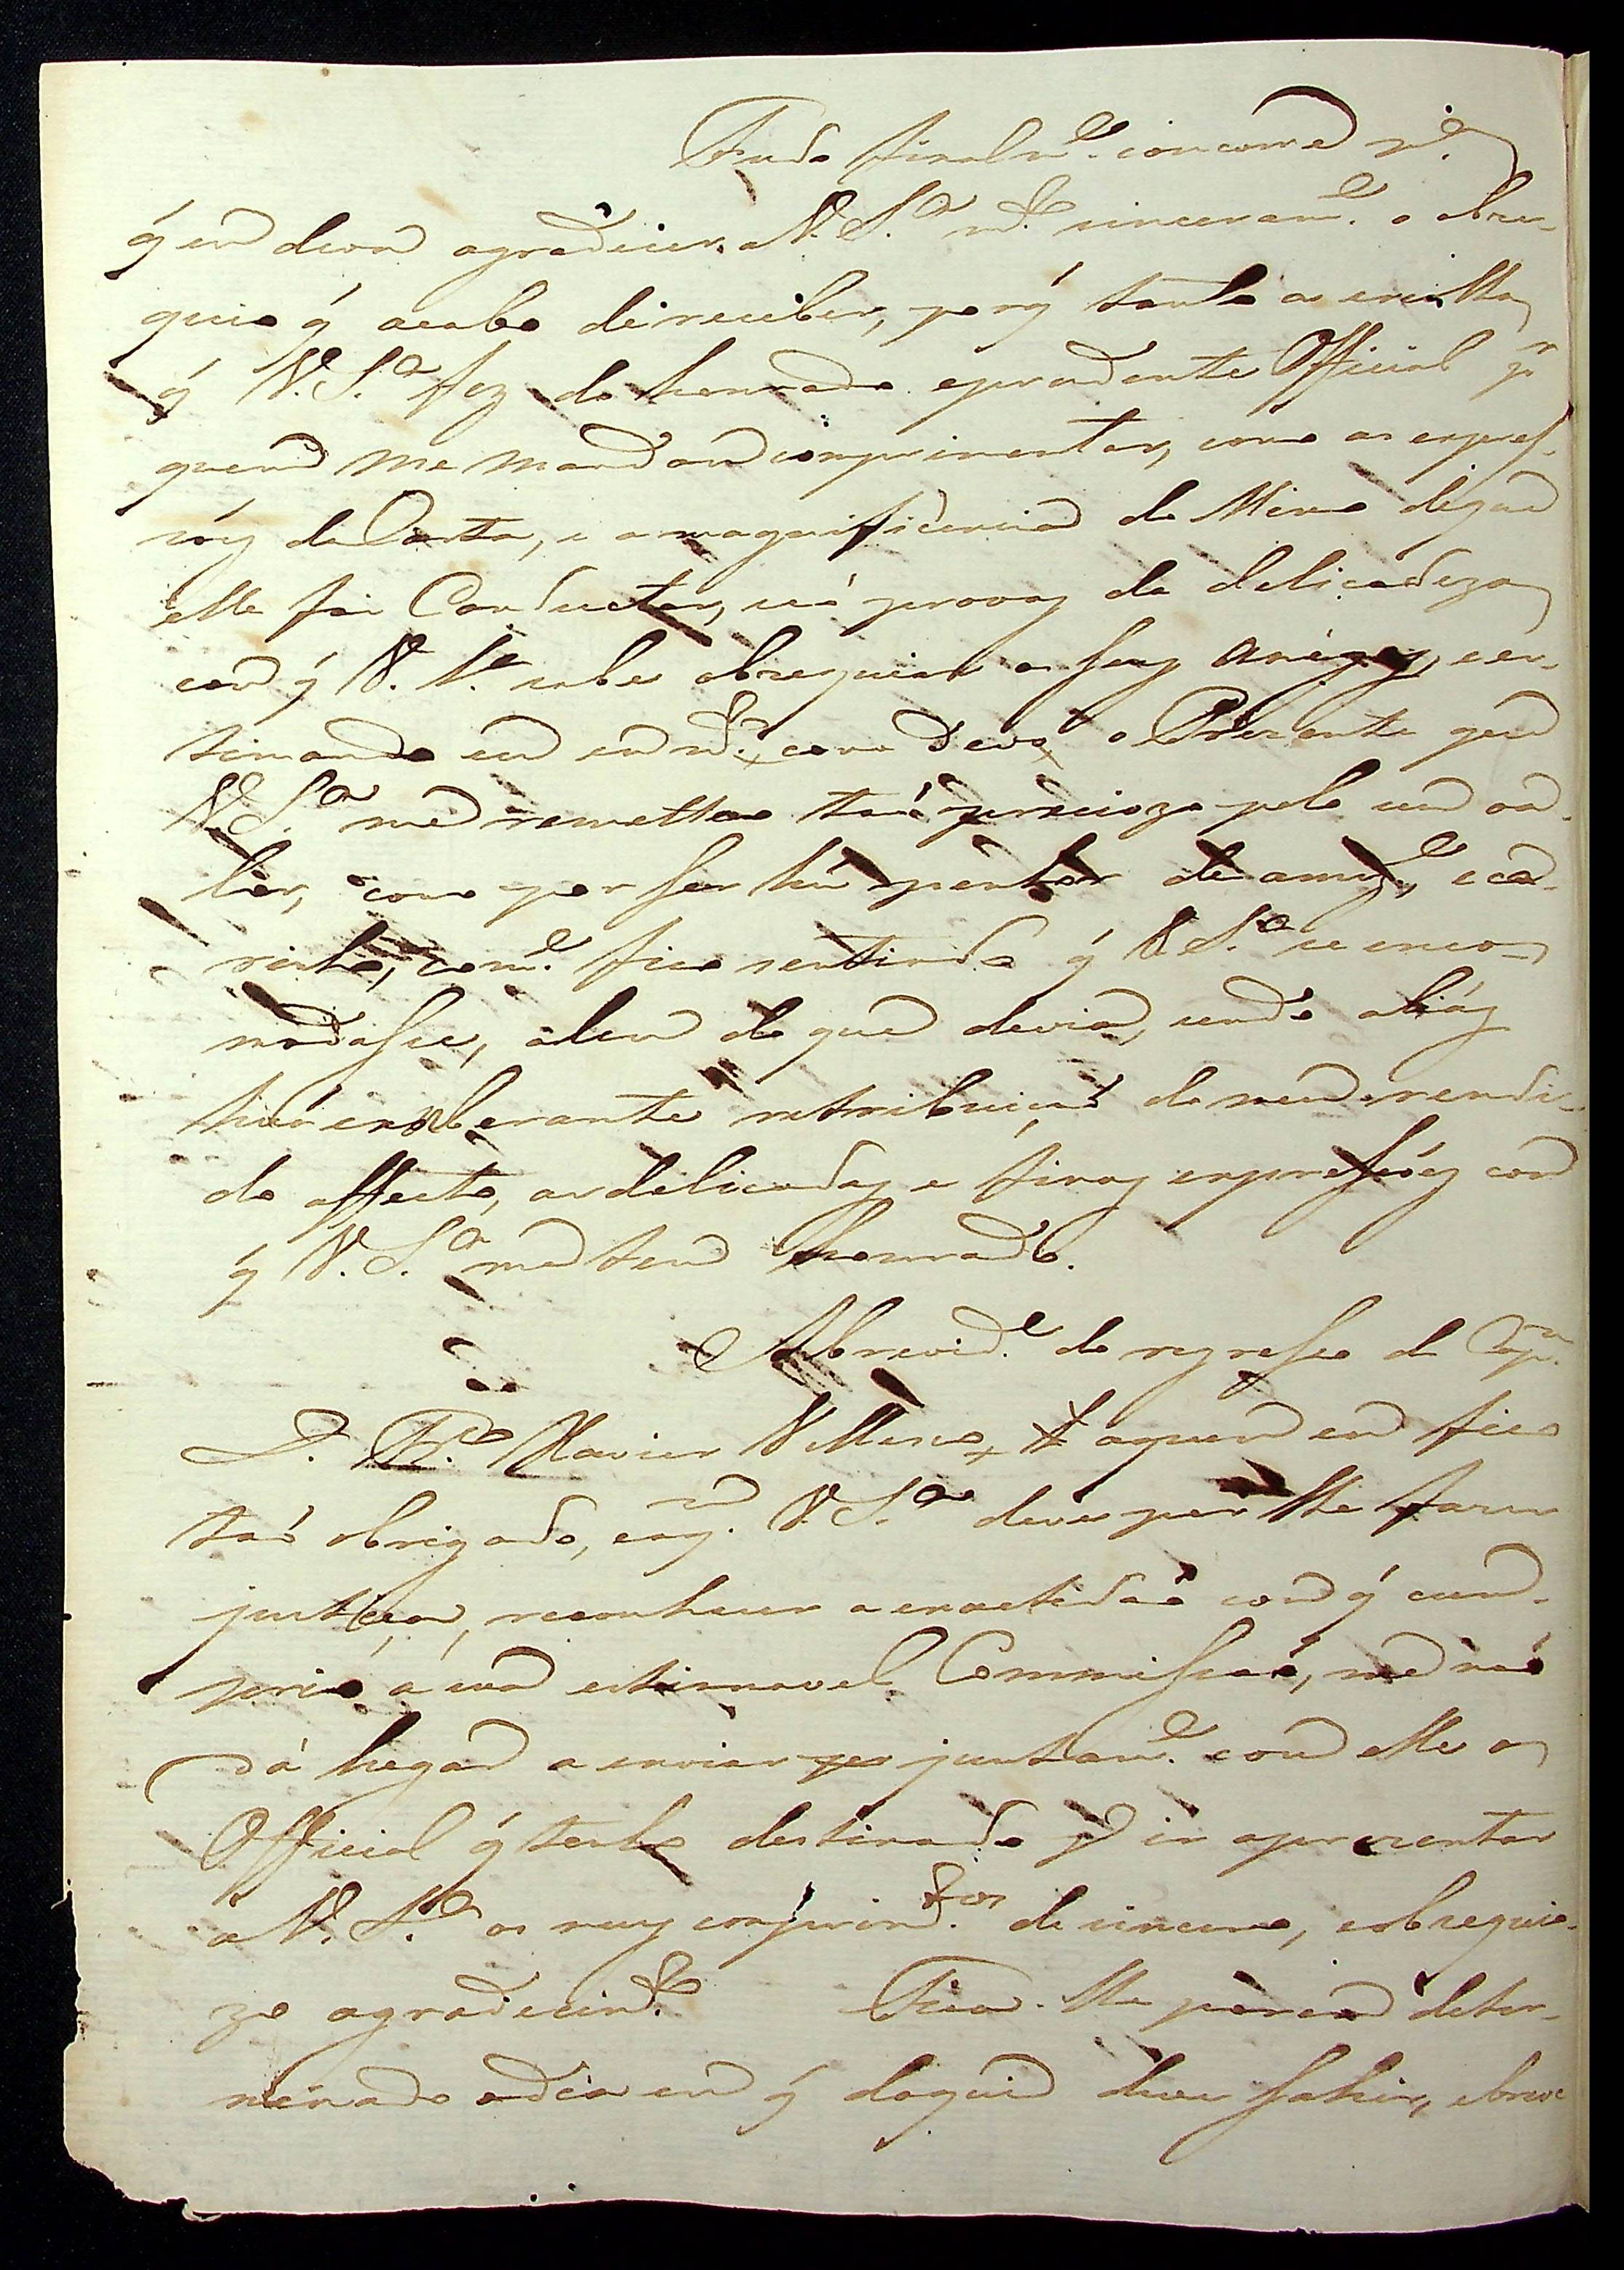 Tudo finalm.e concorre p.a
q̃ eu deva agradecer a V. S.a m.to sinceram.e o obze-
quio q̃ acabo de receber, porq̃ tanto a escolha
q̃ V. S.a fez do honrado e prudente Official p.r
quem me mandou comprimentar, como as expres-
soẽs da Carta, e a magnificencia do Mimo de que
elle foi Conductor, saõ provas da delicadeza
com q̃ V. S.a sabe obsequiar os seus Amigos, es-
timando eu em m.to, como devo o Prezente que
V. S.a me remetteo taõ preciozo pelo seu va-
lor, como por ser hũ penhor de amiz.e, e ca-
rinho, som.e fico sentindo q̃ V. S.a se encom-
modasse, alem do que devia, sendo aliás
huã exuberante retribuiçaõ do meu rendi-
do affecto, as delicadas e finas expressoẽs com
q̃ V. S.a me tem honrado.
A brevid.e do regresso do Cap.m
D. Fr.co Xavier Velasco, a quem eu fico
taõ obrigado, e a q.m V. S.a deve por lhe fazer
justiça, reconhecer a exactidaõ com q̃ cum-
prio a sua estimavel Commissaõ, me naõ
dá lugar a enviar juntam.e com elle o
Official q̃ tenho destinado p.a ir aprezentar
a V. S.a os meus comprim.tos de sincero, e obsequio-
zo agradecim.to Fica-lhe porem deter-
minado o dia em q̃ daqui deve sahir, e breve